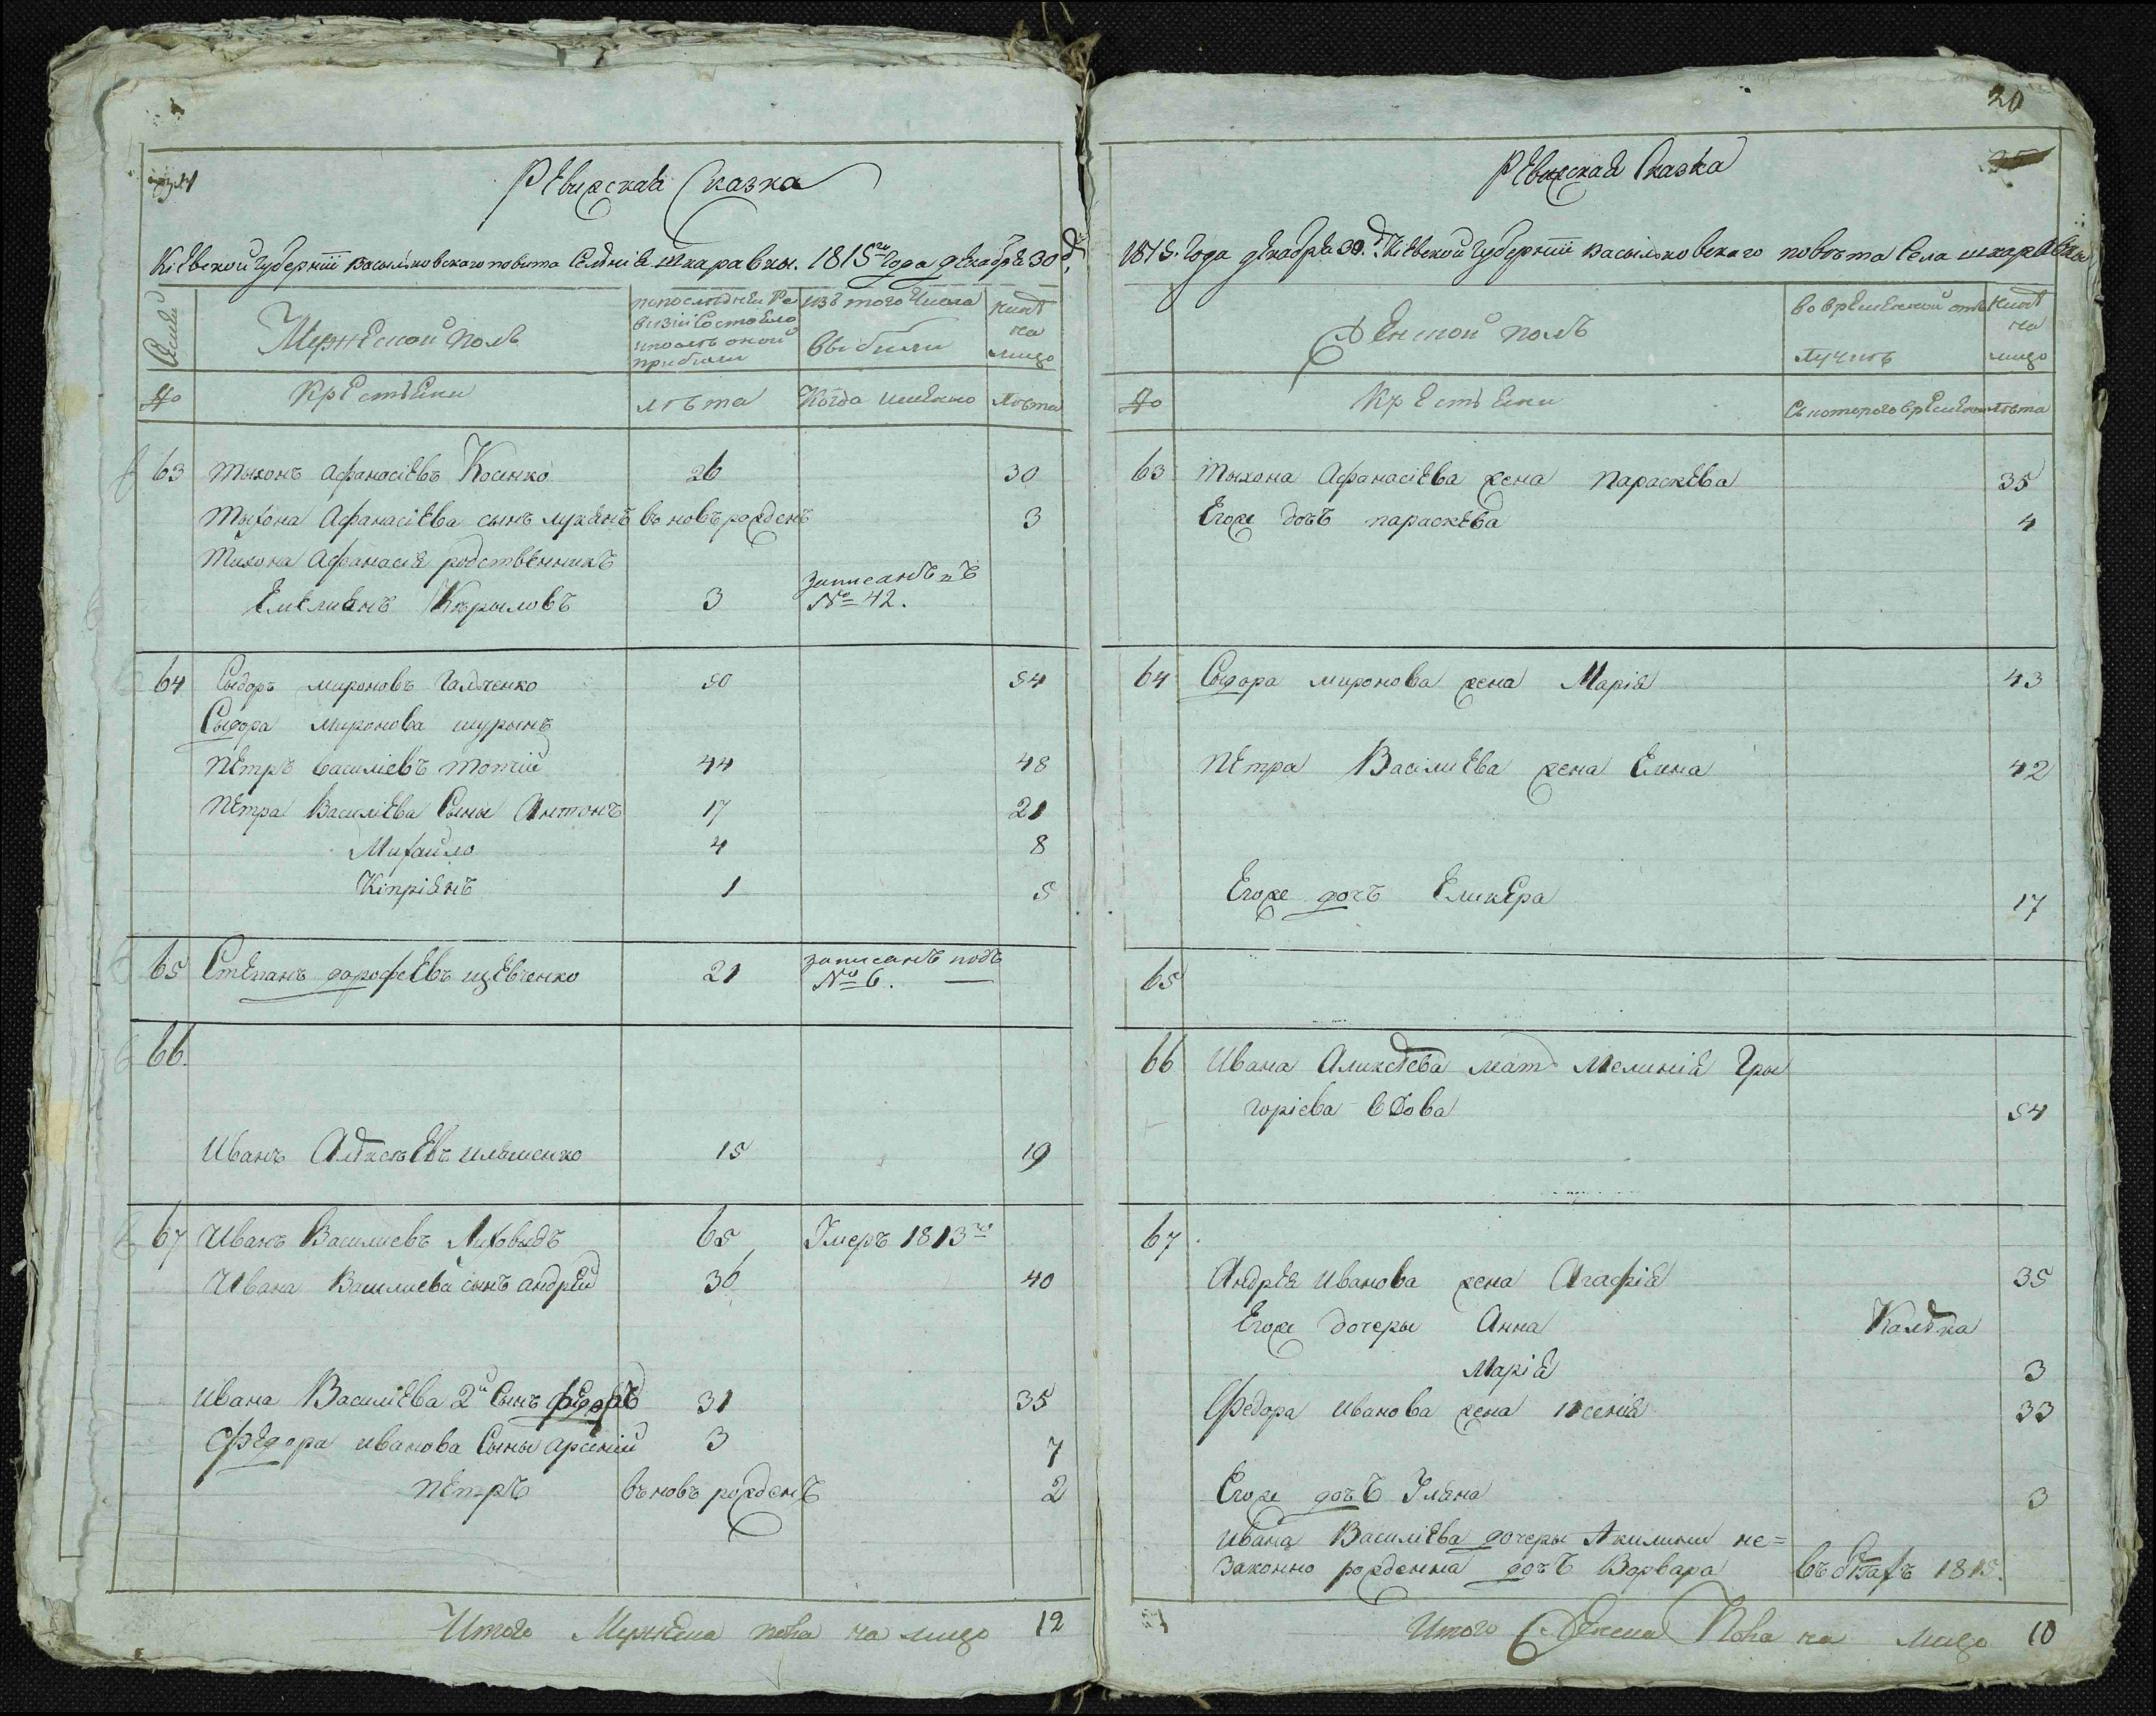 Ревизская Сказка
Кіевской Губерніи Васильковского повита Селенія Шкаравки. 1815го Года декабря 30 д.
Семьи
Мужеской полъ
по последней Ре
визіи состояло
и после оной
прибыли
изъ того числа
выбыли
ныне
на
лицо
№
Крестьяни
лета
Когда именно
лета
63 Тыхонъ Афанасіевъ Косенко 26 30
Тыхона Афанасіева сынъ Лукянъ въ новъ рожденъ 3
Тихона Афанасія родственникъ
записанъ
Емелиянъ Кырыловъ 3 № 42.
64 Сыдоръ мироновъ Галченко 50 54
Сыдора миронова шурынъ
Петръ василіевъ 44 48
Петра Василіева Сыны Антонъ 17 21
Михайло 4 8
Кіпріянъ 1 5
65 Степанъ дорофеевъ Шевченко 21 записанъ подъ
№ 6.
66.
Иванъ Алексеевъ Ильшенко 15 19
67 Иванъ Василиевъ Лиховыдъ 65 Умеръ 1813го
Ивана Василиева сынъ андрей 36 40
Ивана Василіева 2й Сынъ федоръ 31 35
Федора иванова Сыны арсеній 3 7
Петръ въ новъ рожденъ 2
Итого Мужеска пола на лицо 12
20
Ревизская Сказка
1815. Года декабря 30. д. Кіевской Губерніи Васильковского повѣта Села шкаравки
Женской полъ
во временной отлучкѣ
ныне
на
лицо
№
Крестьяни
Съ которого времени
лета
63 Тыхона Афанасіева жена Параскева 35
Егоже дочъ параскева 4
64 Сыдора миронова жена Марія 43
Петра Василиева жена Елена 42
Егоже дочъ Гликера 17
65
66 Ивана Аликсеева мат Мелинія Гры
горіева вдова 54
67
Андрея иванова жена Агафія 35
Егоже дочеры Анна Калека
Марія 3
Федора иванова жена Ксенія 33
Егоже дочъ Уляна 3
ивана Василіева дочеры Акилини не=
законно рожденна дочъ Варвара 1815.
Итого Женска Пола на лицо 10